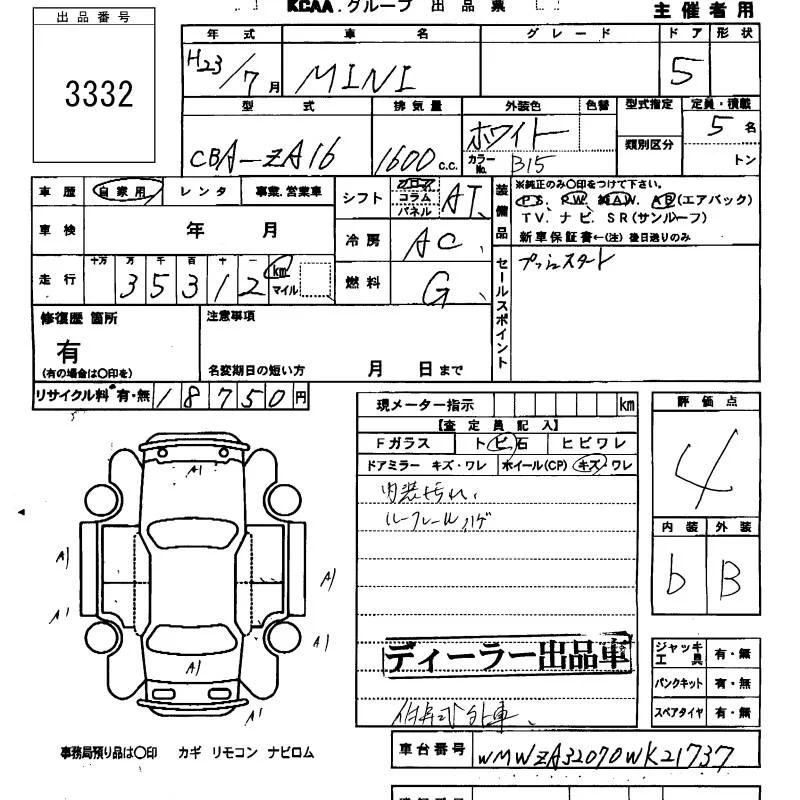 KCAA.グループ 出品票
主催者用
出品番号
3332
年式 車名 グレード ドア 形状
H23/7月 MINI 5
型式 排気量 外装色 色替 型式指定 定員・積載
CBA-ZA16 1600c.c. ホワイト 類別区分 5名
カラーNo. B15 トン
車歴 自家用 レンタ 事業.営業車
シフト フロア コラム パネル AT
装備品
※純正のみ〇印をつけて下さい。
PS、PW、AW、AB(エアバック)
TV、ナビ、SR(サンルーフ)
新車保証書←(注)後日送りのみ
車検 年 月
冷房 AC
走行 十万 万 千 百 十 一
35312 km マイル
燃料 G
セールスポイント
プッシュスタート
修復歴 箇所
有
(有の場合は〇印を)
注意事項
名変期日の短い方 月 日まで
リサイクル料 有・無 18750円
現メーター指示 km
評価点
4
【査定員記入】
Fガラス トビ石 ヒビワレ
ドアミラー キズ・ワレ ホイール(CP) キズ・ワレ
内装汚れ、
ルーフレールハゲ
内装 外装
b B
A1
A1
A1
A1
A1
A1
A1
ディーラー出品車
ジャッキ 工具 有・無
パンクキット 有・無
スペアタイヤ 有・無
事務局預り品は〇印 カギ リモコン ナビロム
車台番号 WMWZA32070WK21737